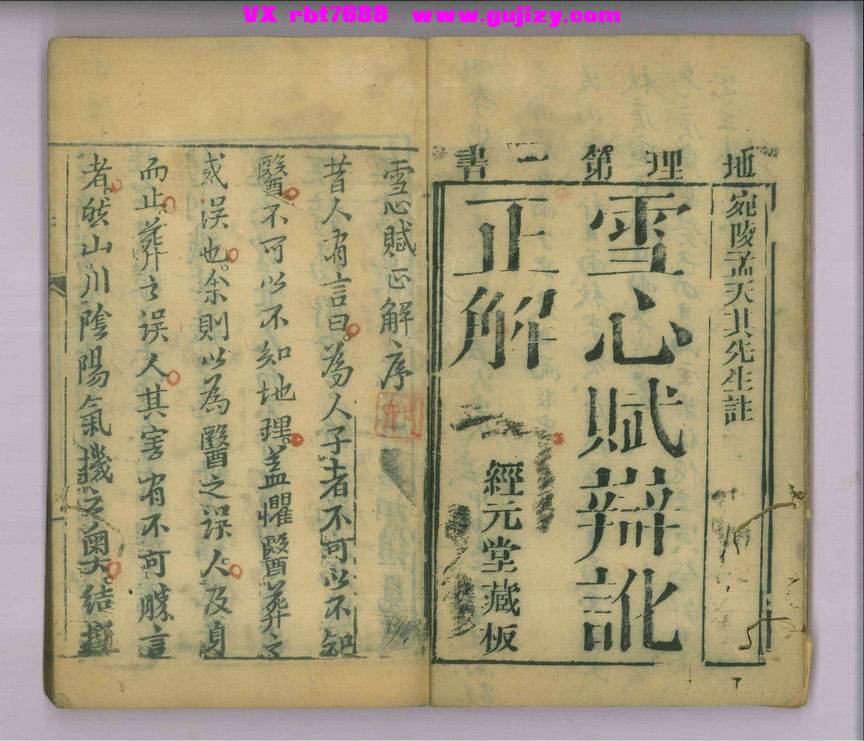 VX rbt7688 www.gujizy.com
地理第一書
宛陵孟天其先生註
雪心賦辯訛
正解
經元堂藏板
雪心賦正解序
昔人有言曰為人子者不可以不知
醫不可以不知地理蓋懼醫葬之
或誤也余則以為醫之誤人及身
而止葬之誤人其害有不可勝言
者然山川陰陽氣機之奧結